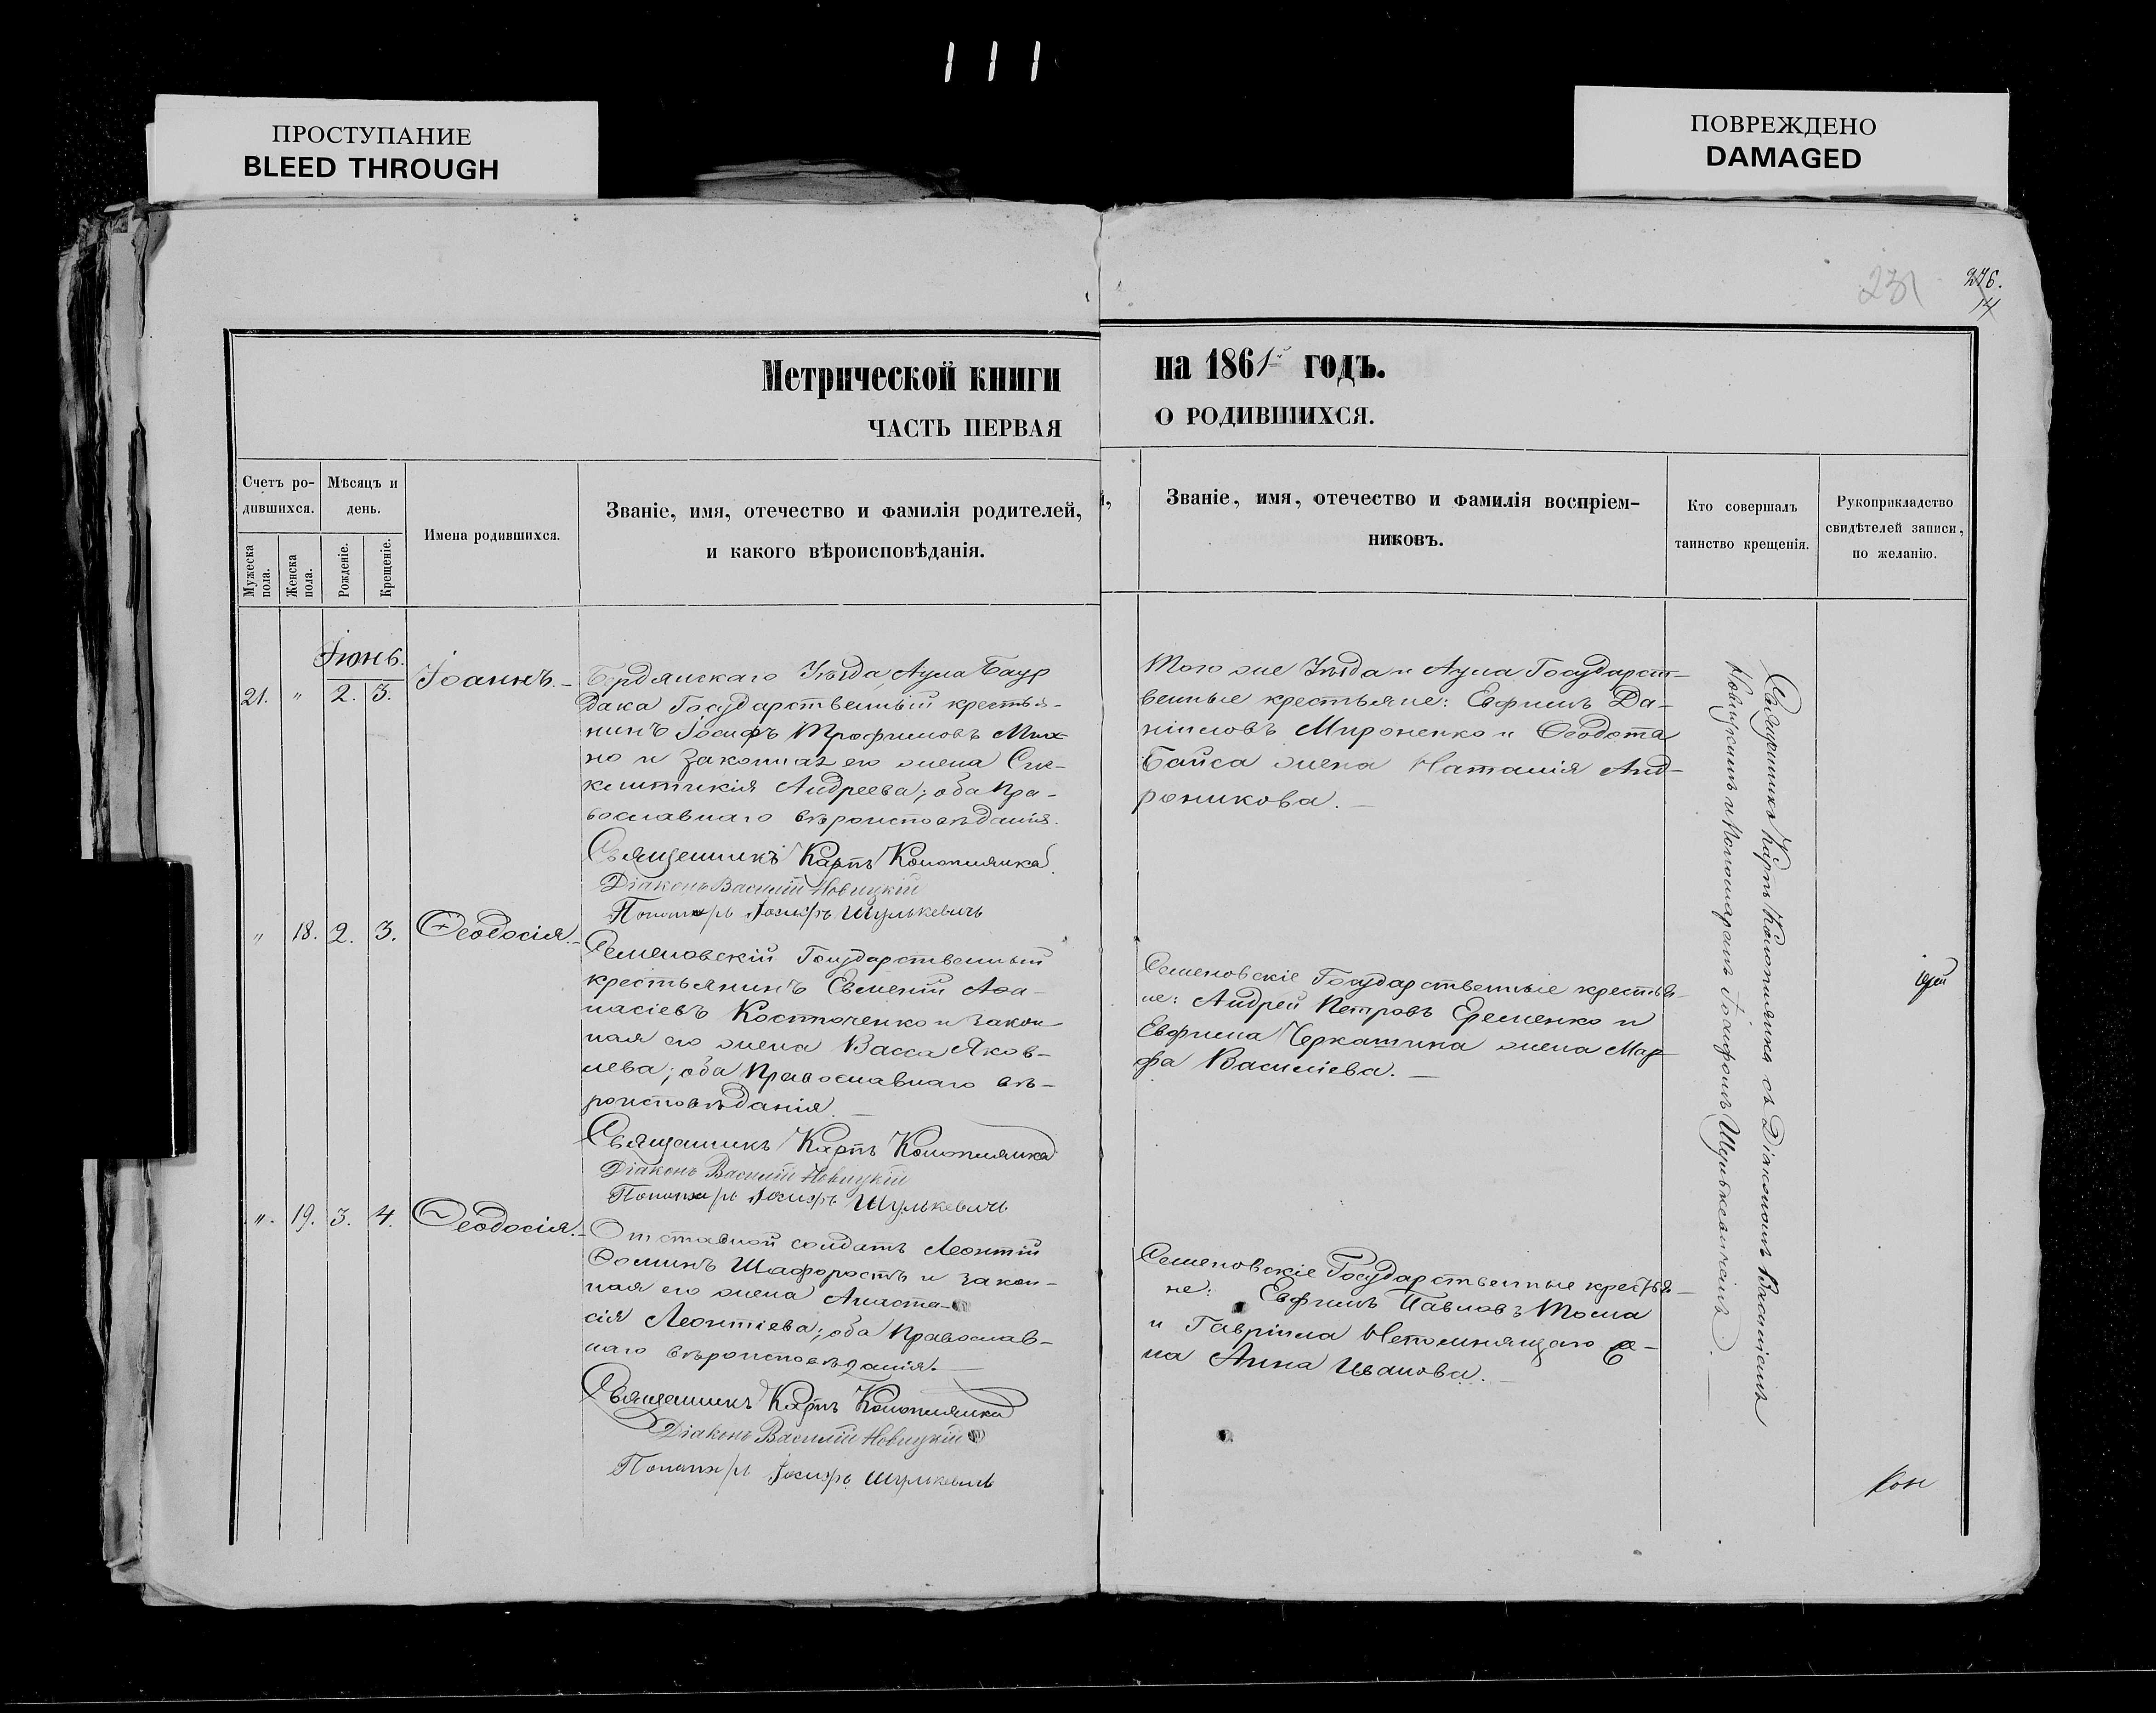 111
ПРОСТУПАНИЕ
BLEED THROUGH
ПОВРЕЖДЕНО
DAMAGED
231
276.
Метрической книги
на 1861й годъ.
ЧАСТЬ ПЕРВАЯ
О РОДИВШИХСЯ.
Счетъ ро-
дившихся.
Мужеска пола.
Женска пола.
Мѣсяцъ и
день.
Рожденіе.
Крещеніе.
Имена родившихся.
Званіе, имя, отечество и фамилія родителей,
и какого вѣроисповѣданія.
Званіе, имя, отечество и фамилія воспріем-
никовъ.
Кто совершалъ
таинство крещенія.
Рукоприкладство
свидѣтелей записи,
по желанію.
Іюнь.
21. " 2. 3.
Іоаннъ.
Бердянскаго Уѣзда, Аула Баур
дака Государственный крестья-
нинъ Іосифъ Трофимовъ Мих
но и законная его жена Син-
клитикія Андреева; оба Пра-
вославнаго вѣроисповѣданія.
Священникъ Карпъ Коноплянка
Діаконъ Василій Новицкій
Пономарь Іосифъ Шулькевичъ
Того же Уѣзда и Аула Государст-
венные крестьяне: Евфимъ Да-
ніиловъ Мироненко и Ѳеодота
Байса жена Наталія Анд-
роникова.
" 18. 2. 3.
Ѳеодосія.
Семеновскій Государственный
крестьянинъ Евменій Аѳа-
насіевъ Костюченко и закон-
ная его жена Васса Яков-
лева; оба Православнаго вѣ-
роисповѣданія.
Священникъ Карпъ Коноплянка
Діаконъ Василій Новицкій
Пономарь Іосифъ Шулькевичъ
Семеновскіе Государственные крестья-
не: Андрей Петровъ Еременко и
Евфима Черкашина жена Мар-
фа Васильева.
" 19. 3. 4.
Ѳеодосія.
Отставной солдатъ Леонтій
Ѳоминъ Шафоростъ и закон-
ная его жена Анаста-
сія Леонтіева; оба Православ-
наго вѣроисповѣданія.
Священникъ Карпъ Коноплянка
Діаконъ Василій Новицкій
Пономарь Іосифъ Шулькевичъ
Семеновскіе Государственные крестья-
не: Евфимъ Павловъ
и Гавріила Непомнящаго же-
на Анна Иванова.
Священникъ Карпъ Коноплянка съ Діакономъ Василіемъ
Новицкимъ и Пономаремъ Іосифомъ Шулькевичемъ.
Кон